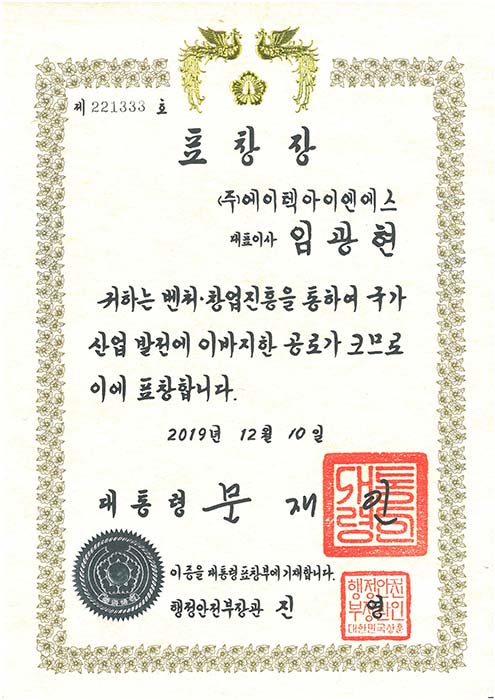 제 221333 호
표창장
(주)에이텍아이엔에스
대표이사 임광현
귀하는 벤처·창업진흥을 통하여 국가
산업 발전에 이바지한 공로가 크므로
이에 표창합니다.
2019년 12월 10일
대통령 문재인
대통
령인
이 증을 대통령표창부에 기재합니다.
행정안전부장관 진영
행정안전
부장관인
대한민국상훈